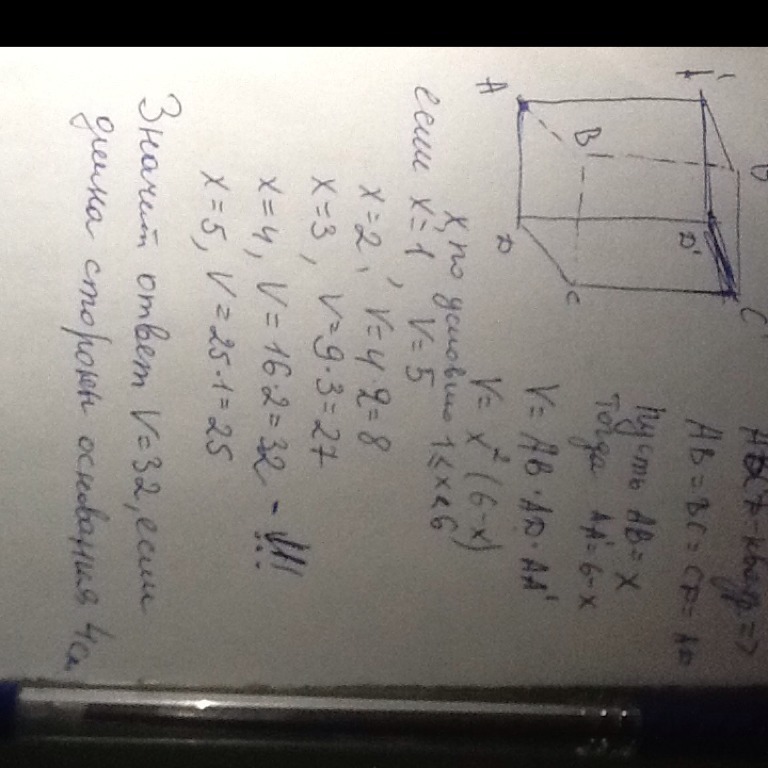 A
B
D
C
A'
D'
C'
ABCD - квадр =>
AB = BC = CD = AD
Пусть AB = x
Тогда AA' = 6-x
V = AB · AD · AA'
V = x² (6-x)
x, по условию 1 ≤ x < 6
если x = 1, V = 5
x = 2, V = 4·2 = 8
x = 3, V = 9·3 = 27
x = 4, V = 16·2 = 32 - !!!
x = 5, V = 25·1 = 25
Значит ответ V = 32, если
длина сторон основания 4см.